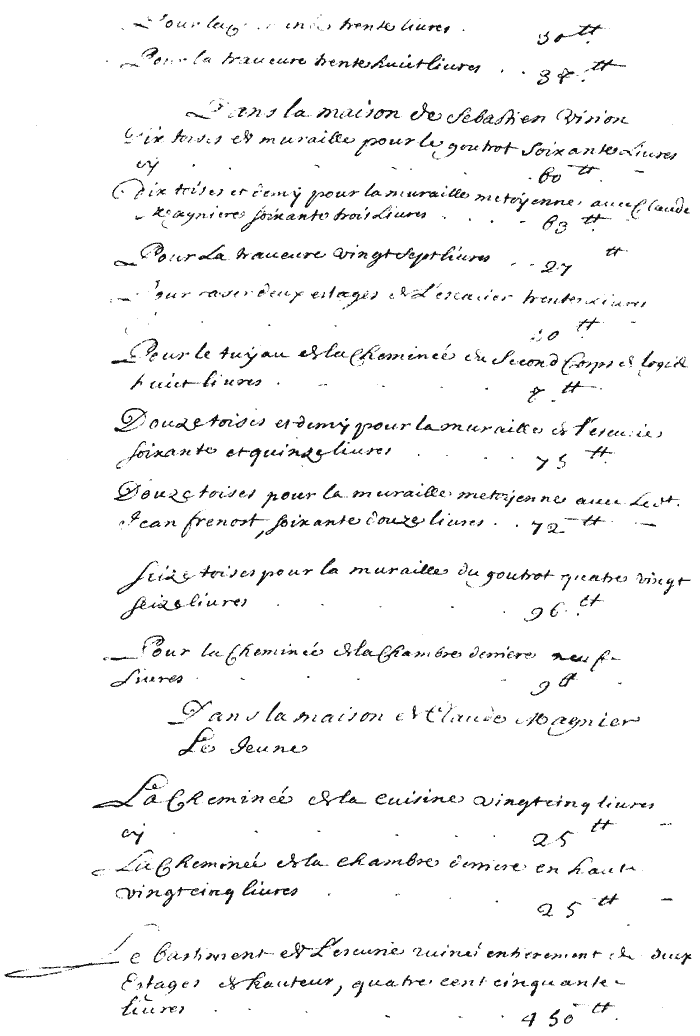 Pour la trente livres 30 tt
Pour la traveure trente huict livres 38 tt
Dans la maison de Sebastien Virion
Dix toises de muraille pour le goutrot soixante Livres
cy 60 tt
Dix toises et demy pour la muraille metoyenne avec Claude
Magniere soixante trois Livres 63 tt
Pour La traveure vingt sept livres 27 tt
Pour raser deux estages de L'escalier trente Livres
30 tt
Pour le tuyau de la Cheminée du Second Corps de Logid
huict livres 8 tt
Douze toises et demy pour la muraille de l'escurie
soixante et quinze livres 75 tt
Douze toises pour la muraille metoyenne avec Ledt.
Jean frenost, soixante douze livres 72 tt
Seize toises pour la muraille du goutrot quatre vingt
seize livres 96 tt
Pour la Cheminée de la Chambre derriere neuf
Livres 9 tt
Dans la maison de Claude Magnier
Le Jeune
La Cheminée de la cuisine vingt cinq livres
cy 25 tt
La Cheminée de la chambre derriere en haut
vingt cinq livres 25 tt
Le bastiment de L'escurie ruiné entierement de deux
Estages de hauteur, quatre cent cinquante
livres 450 tt